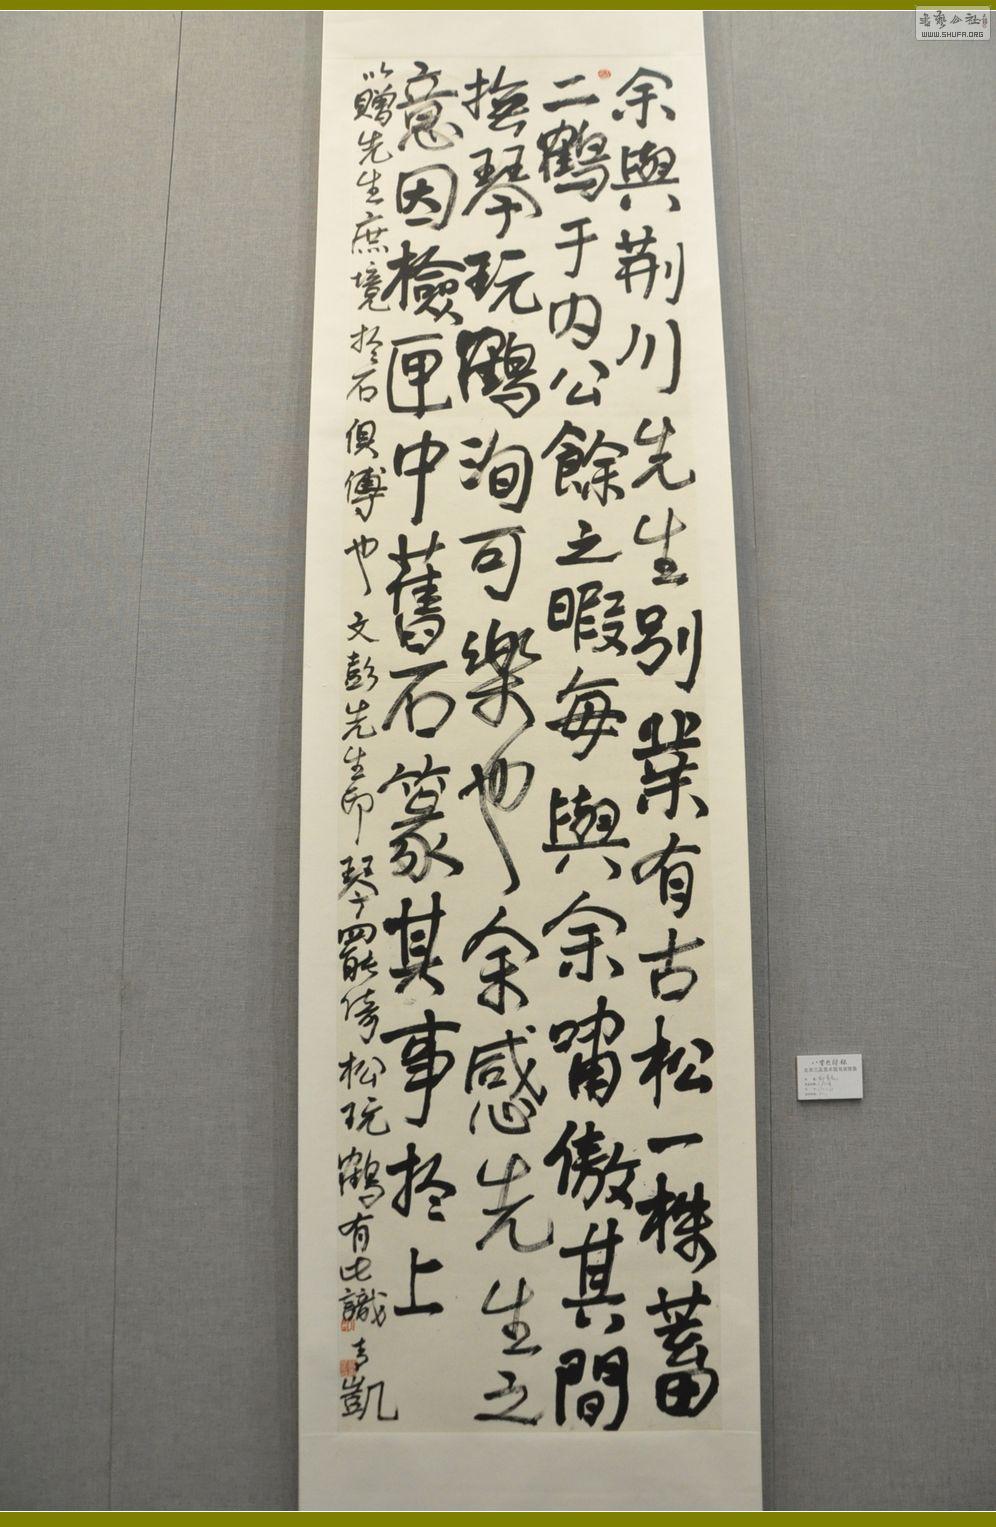 余與荆川先生別業有古松一株蓄
二鶴于內公餘之暇每與余嘯傲其間
撫琴玩鶴洵可樂也余感先生之
意因檢匣中舊石篆其事於上
以贈先生庶境於石俱傳也 文彭先生印 琴罷倚松玩鶴有此識
凱
WWW.SHUFA.ORG